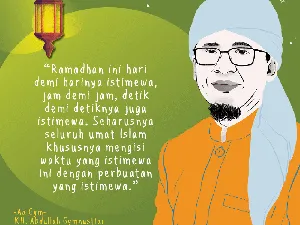 “Ramadhan ini hari
demi harinya istimewa,
jam demi jam, detik
demi detiknya juga
istimewa. Seharusnya
seluruh umat Islam
khususnya mengisi
waktu yang istimewa
ini dengan perbuatan
yang istimewa.”
-Aa Gym-
K.H. Abdullah Gymnastiar